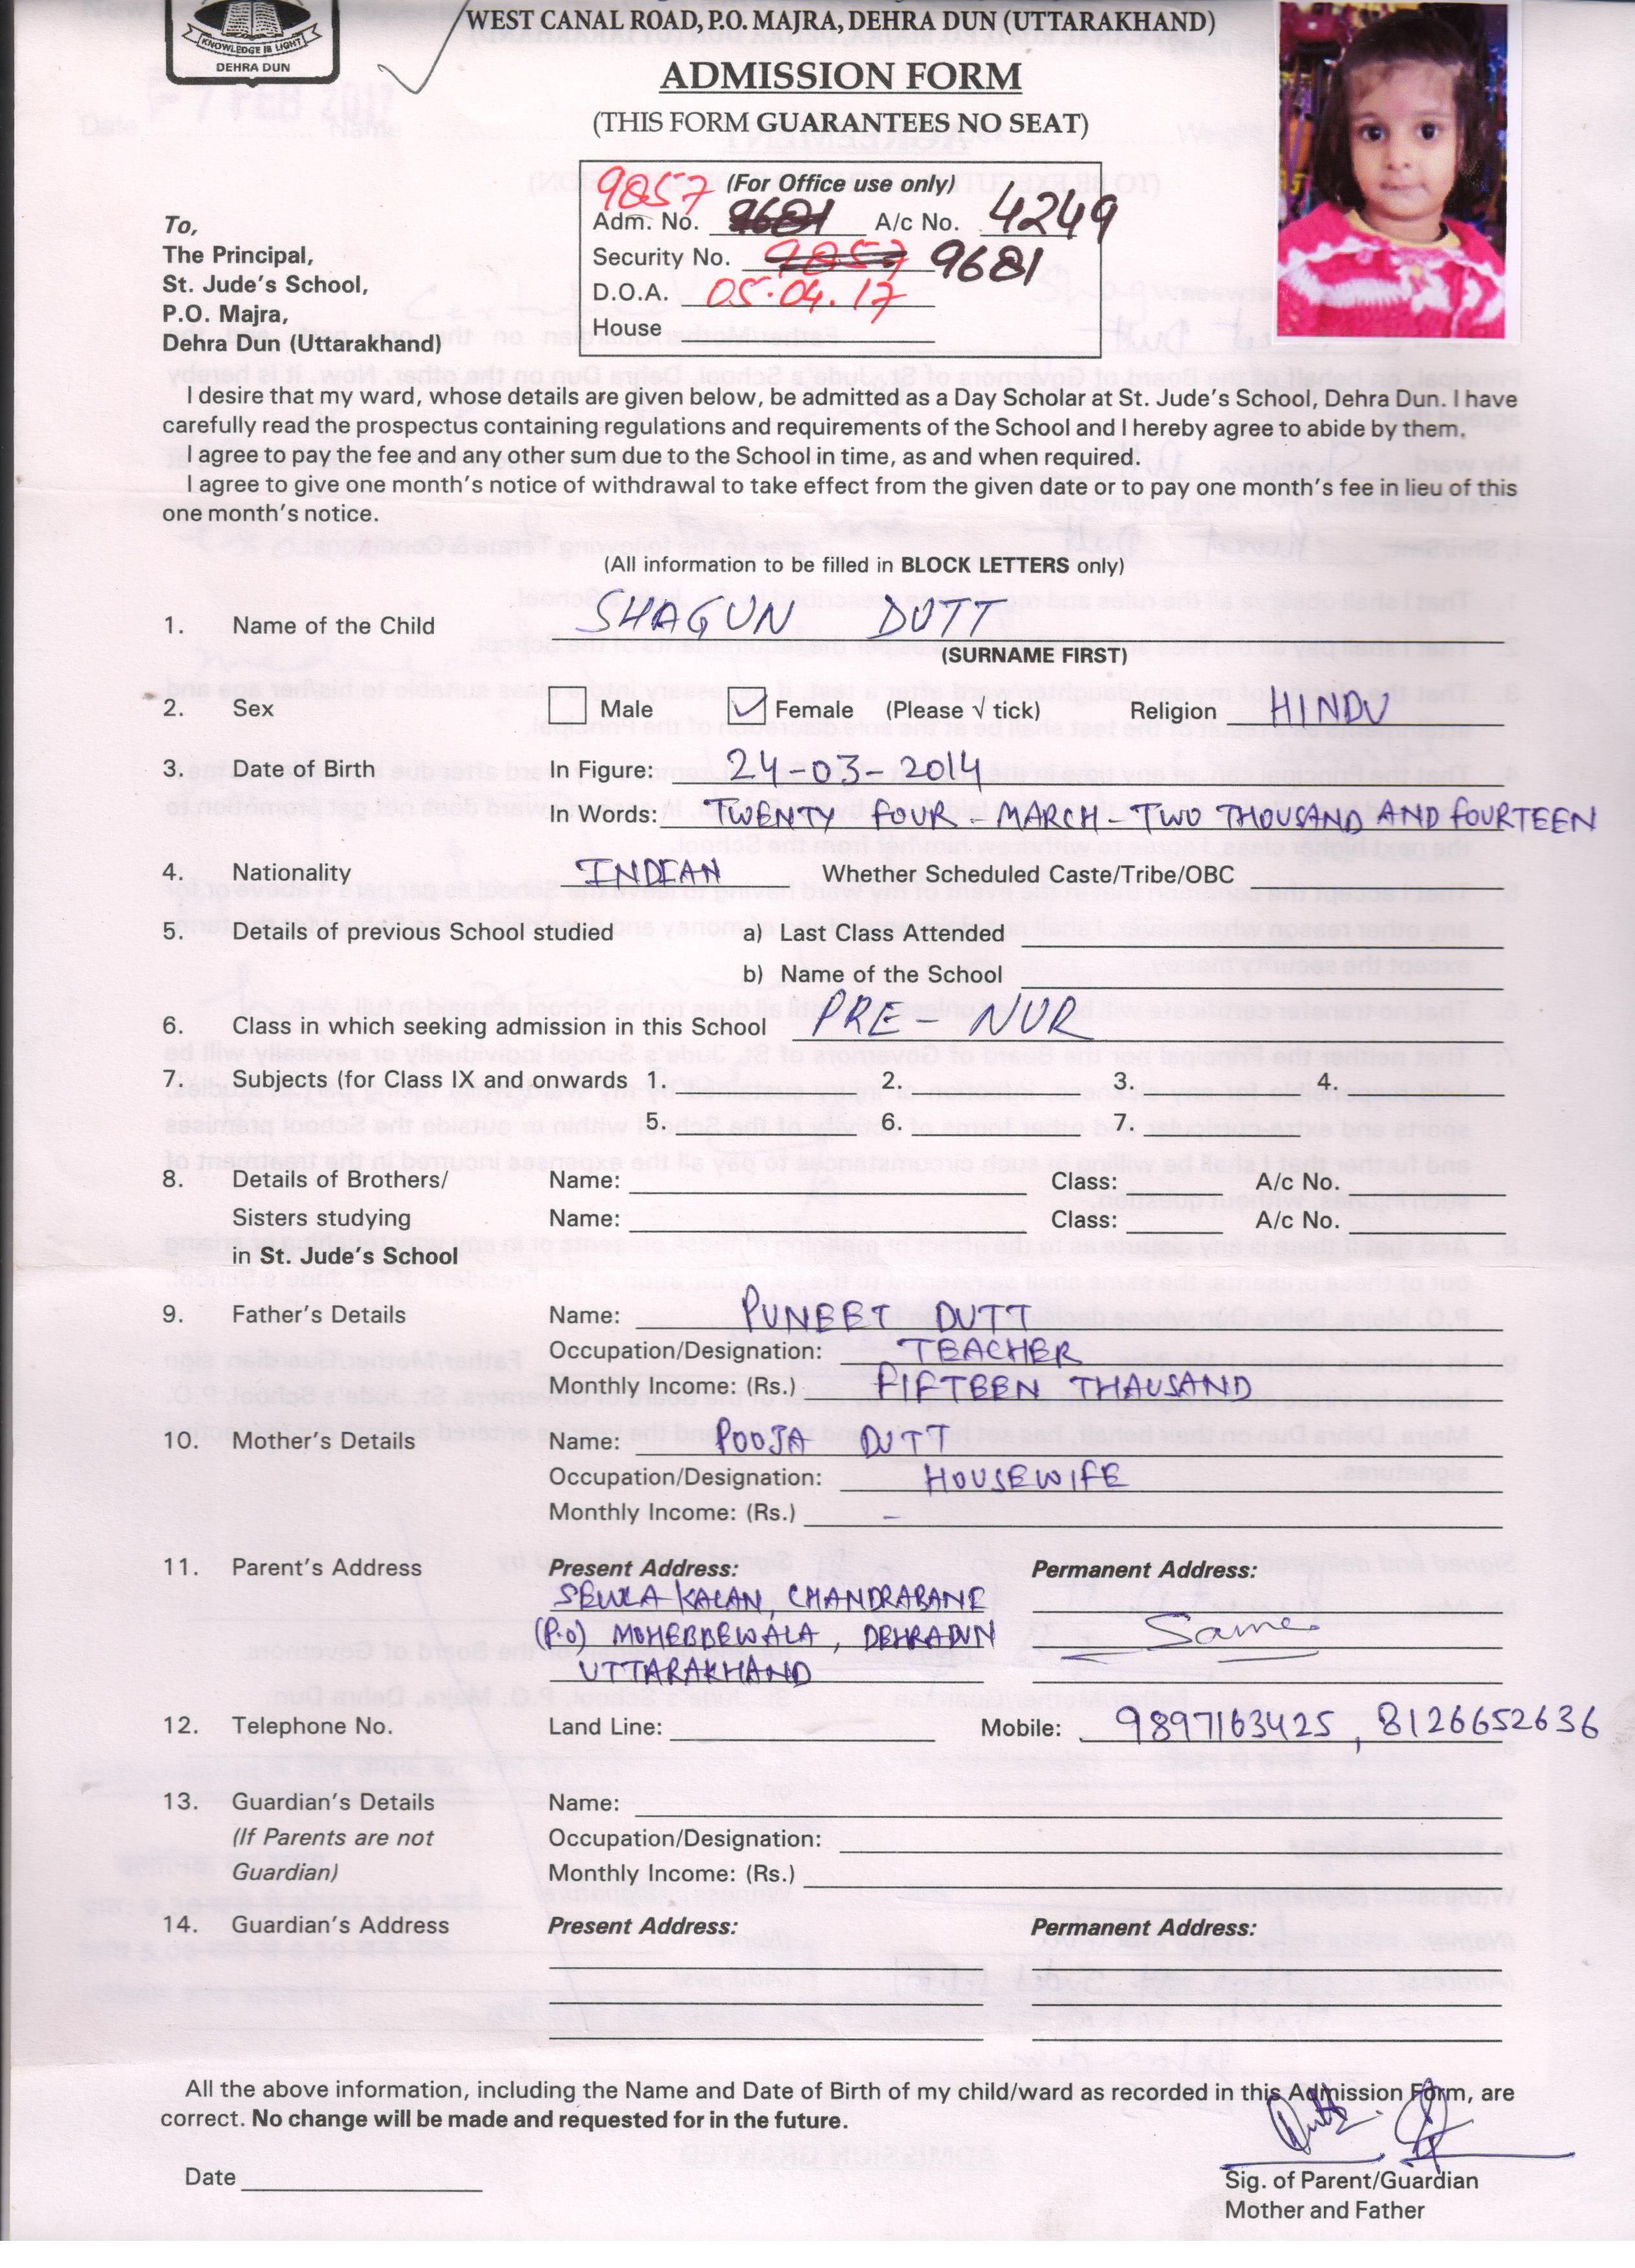 KNOWLEDGE IS LIGHT
DEHRA DUN
WEST CANAL ROAD, P.O. MAJRA, DEHRA DUN (UTTARAKHAND)
ADMISSION FORM
(THIS FORM GUARANTEES NO SEAT)
9857 (For Office use only)
Adm. No. 9681 A/c No. 4249
Security No. 9857 9681
D.O.A. 05.04.17
House
To,
The Principal,
St. Jude's School,
P.O. Majra,
Dehra Dun (Uttarakhand)
I desire that my ward, whose details are given below, be admitted as a Day Scholar at St. Jude's School, Dehra Dun. I have
carefully read the prospectus containing regulations and requirements of the School and I hereby agree to abide by them.
I agree to pay the fee and any other sum due to the School in time, as and when required.
I agree to give one month's notice of withdrawal to take effect from the given date or to pay one month's fee in lieu of this
one month's notice.
(All information to be filled in BLOCK LETTERS only)
1. Name of the Child SHAGUN DUTT
(SURNAME FIRST)
2. Sex Male Female (Please √ tick) Religion HINDU
3. Date of Birth In Figure: 24-03-2014
In Words: TWENTY FOUR - MARCH - TWO THOUSAND AND FOURTEEN
4. Nationality INDIAN Whether Scheduled Caste/Tribe/OBC
5. Details of previous School studied a) Last Class Attended
b) Name of the School
6. Class in which seeking admission in this School PRE - NUR
7. Subjects (for Class IX and onwards 1. 2. 3. 4.
5. 6. 7.
8. Details of Brothers/ Name: Class: A/c No.
Sisters studying Name: Class: A/c No.
in St. Jude's School
9. Father's Details Name: PUNEET DUTT
Occupation/Designation: TEACHER
Monthly Income: (Rs.) FIFTEEN THAUSAND
10. Mother's Details Name: POOJA DUTT
Occupation/Designation: HOUSEWIFE
Monthly Income: (Rs.) -
11. Parent's Address Present Address: Permanent Address:
SEWLA KALAN, CHANDRABANI
(P.O) MOHEBBEWALA, DEHRADUN Same
UTTARAKHAND
12. Telephone No. Land Line: Mobile: 9897163425, 8126652636
13. Guardian's Details Name:
(If Parents are not Occupation/Designation:
Guardian) Monthly Income: (Rs.)
14. Guardian's Address Present Address: Permanent Address:
All the above information, including the Name and Date of Birth of my child/ward as recorded in this Admission Form, are
correct. No change will be made and requested for in the future.
Dutt
Date
Sig. of Parent/Guardian
Mother and Father